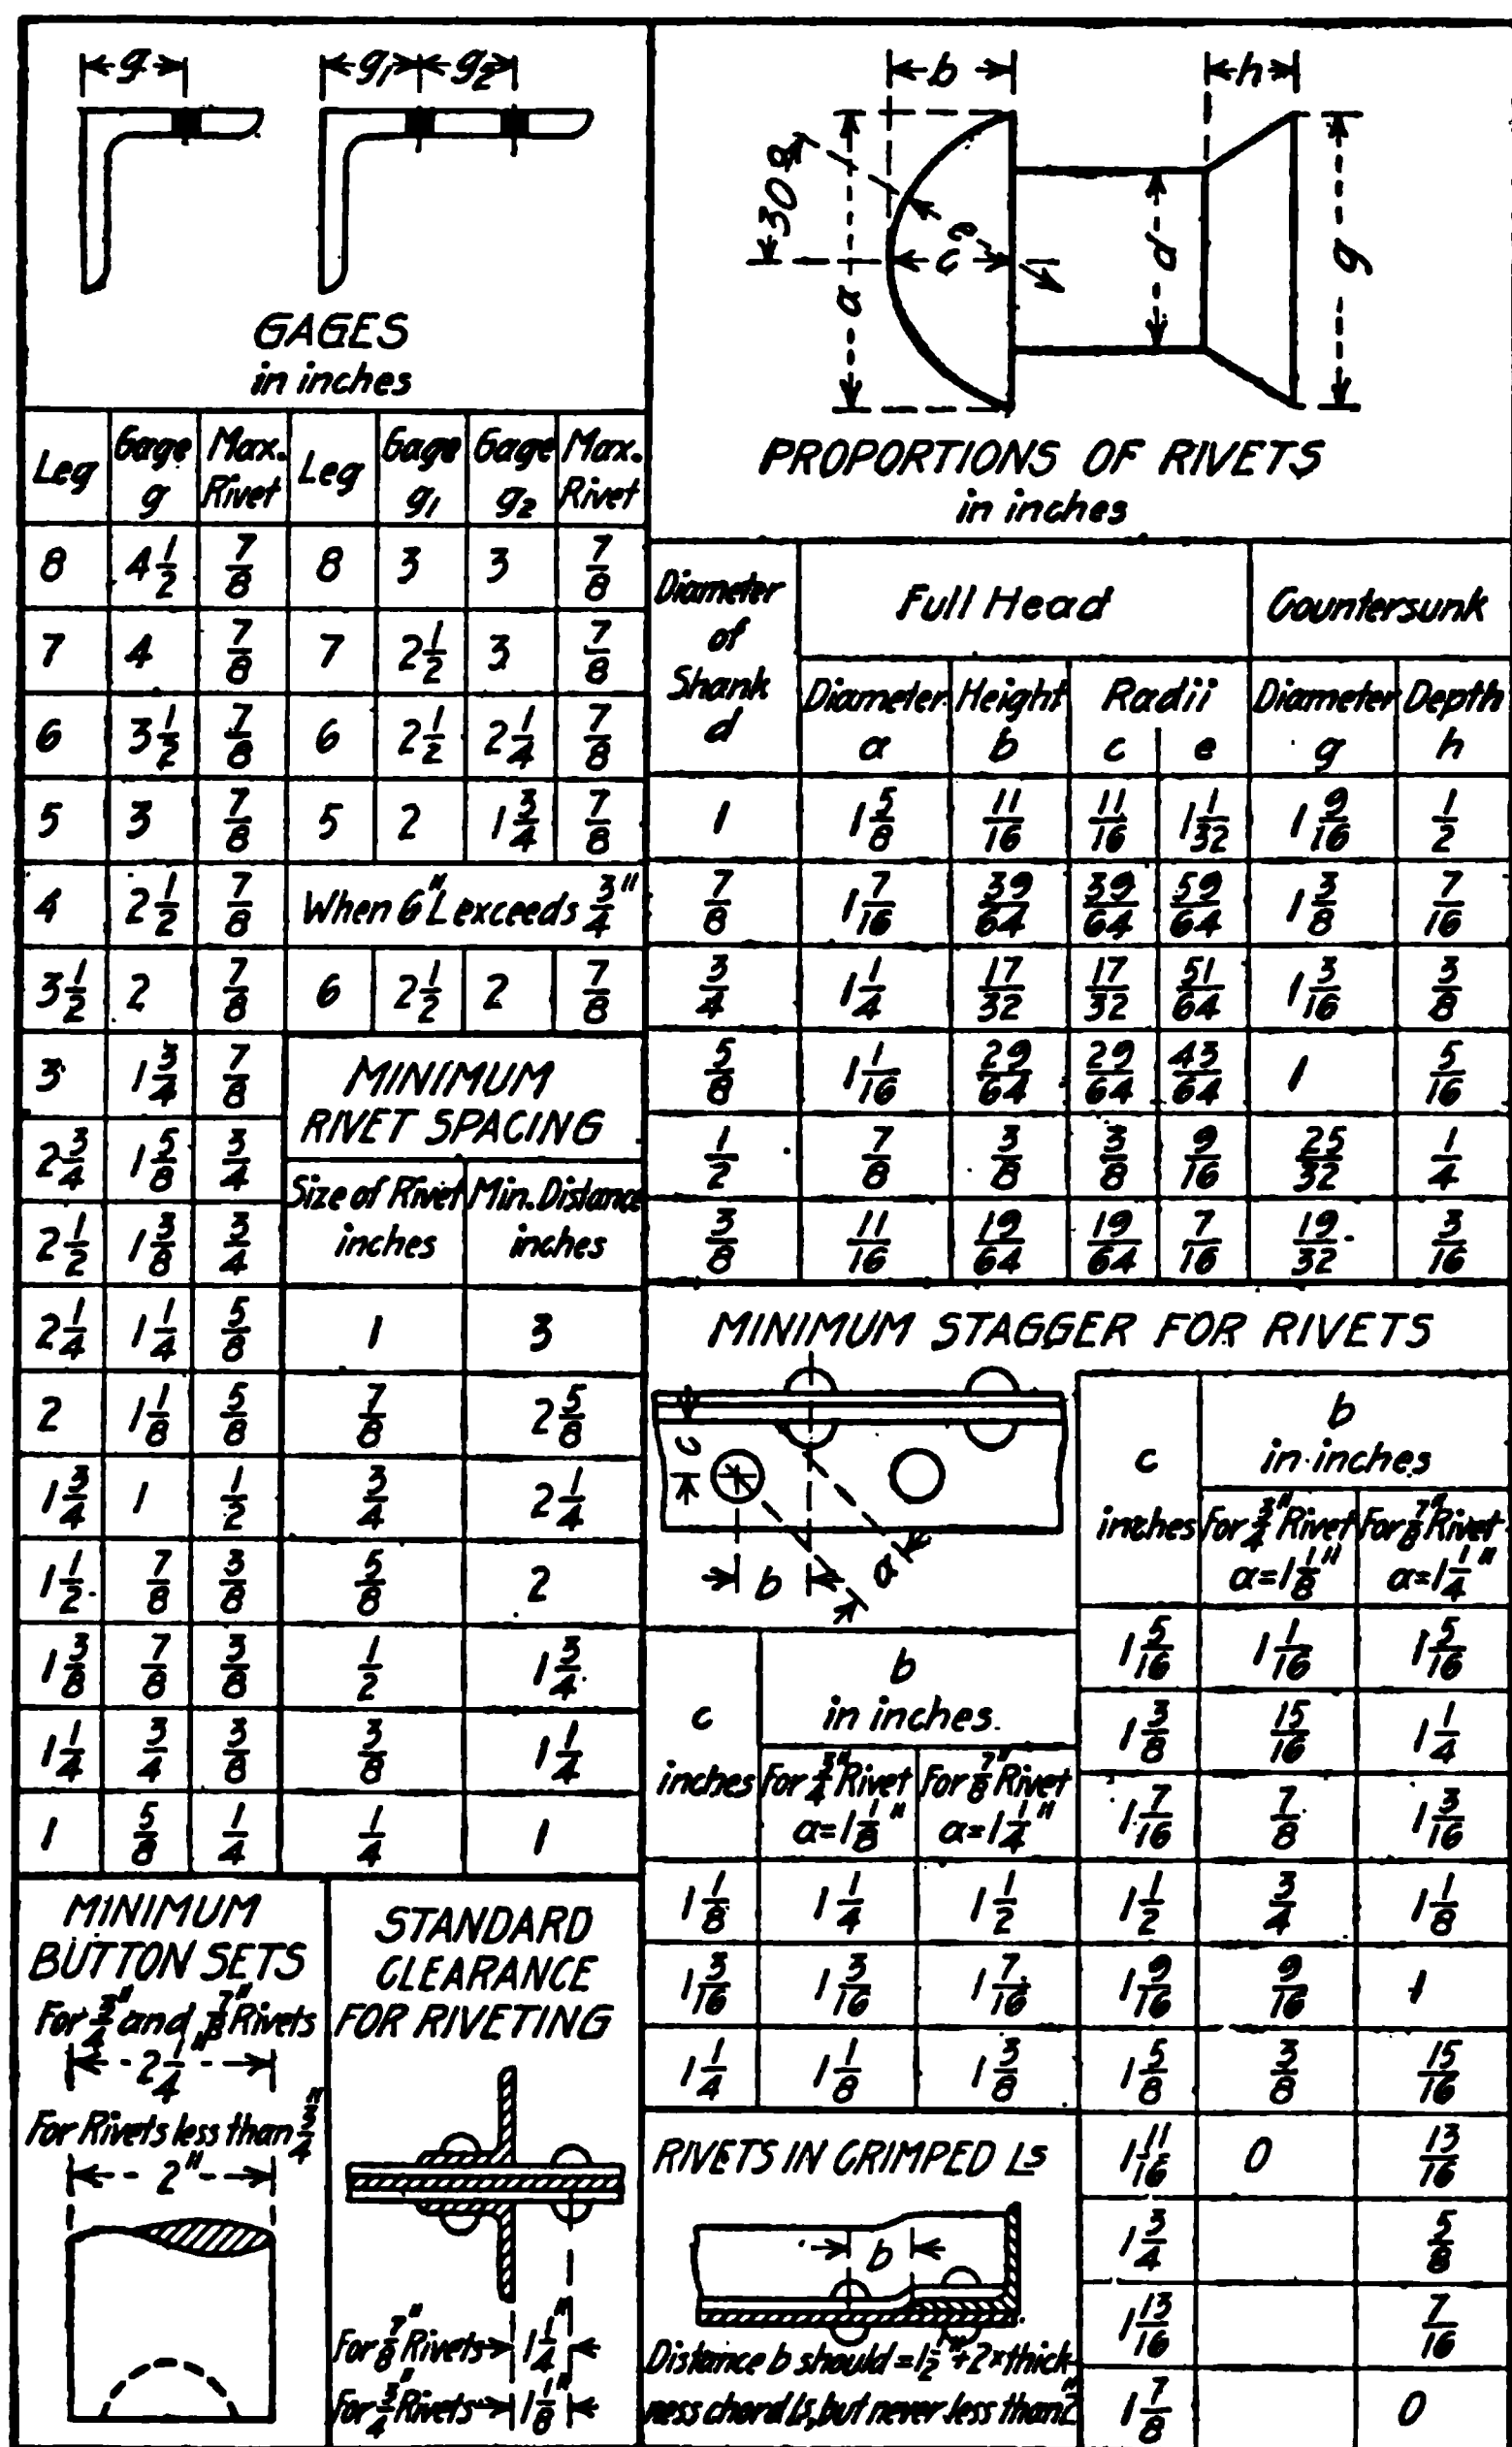 g g₁ g₂
GAGES
in inches
Leg Gage g Max. Rivet Leg Gage g₁ Gage g₂ Max. Rivet
8 4 1/2 7/8 8 3 3 7/8
7 4 7/8 7 2 1/2 3 7/8
6 3 1/2 7/8 6 2 1/2 2 1/4 7/8
5 3 7/8 5 2 1 3/4 7/8
4 2 1/2 7/8 When 6" L exceeds 3/4"
3 1/2 2 7/8 6 2 1/2 2 7/8
3 1 3/4 7/8
2 3/4 1 5/8 3/4
2 1/2 1 3/8 3/4
2 1/4 1 1/4 5/8
2 1 1/8 5/8
1 3/4 1 1/2
1 1/2 7/8 3/8
1 3/8 7/8 3/8
1 1/4 3/4 3/8
1 5/8 1/4
MINIMUM
RIVET SPACING
Size of Rivet inches Min. Distance inches
1 3
7/8 2 5/8
3/4 2 1/4
5/8 2
1/2 1 3/4
3/8 1 1/4
1/4 1
MINIMUM
BUTTON SETS
For 3/4" and 7/8" Rivets
2 1/4"
For Rivets less than 3/4"
2"
STANDARD
CLEARANCE
FOR RIVETING
For 7/8" Rivets 1 1/4"
For 3/4" Rivets 1 1/8"
b h
30° a e c d g
PROPORTIONS OF RIVETS
in inches
Diameter of Shank d Full Head Countersunk
Diameter a Height b Radii c e Diameter g Depth h
1 1 5/8 11/16 11/16 1 1/32 1 9/16 1/2
7/8 1 7/16 39/64 39/64 59/64 1 3/8 7/16
3/4 1 1/4 17/32 17/32 51/64 1 3/16 3/8
5/8 1 1/16 29/64 29/64 43/64 1 5/16
1/2 7/8 3/8 3/8 9/16 25/32 1/4
3/8 11/16 19/64 19/64 7/16 19/32 3/16
MINIMUM STAGGER FOR RIVETS
c b a
c inches b in inches.
For 3/4" Rivet a=1 1/8" For 7/8" Rivet a=1 1/4"
1 1/8 1 1/4 1 1/2
1 3/16 1 3/16 1 7/16
1 1/4 1 1/8 1 3/8
c inches b in inches
For 3/4" Rivet a=1 1/8" For 7/8" Rivet a=1 1/4"
1 5/16 1 1/16 1 5/16
1 3/8 15/16 1 1/4
1 7/16 7/8 1 3/16
1 1/2 3/4 1 1/8
1 9/16 9/16 1
1 5/8 3/8 15/16
1 11/16 0 13/16
1 3/4 5/8
1 13/16 7/16
1 7/8 0
RIVETS IN CRIMPED Ls
b
Distance b should = 1 1/2" + 2 x thick-
ness chord Ls, but never less than 2"